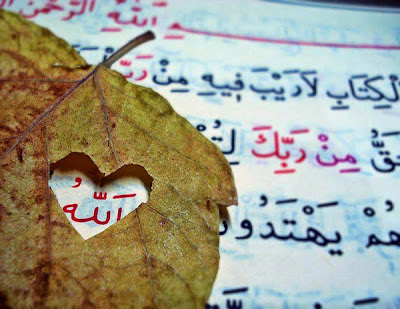 الرَّحْمٰنِ
مِ اللّٰهِ
لْكِتَابِ لاَرَيْبَ فِيهِ مِنْ رَبِّ
حَقُّ مِنْ رَبِّكَ
هُمْ يَهْتَدُونَ
اَللّٰهُ